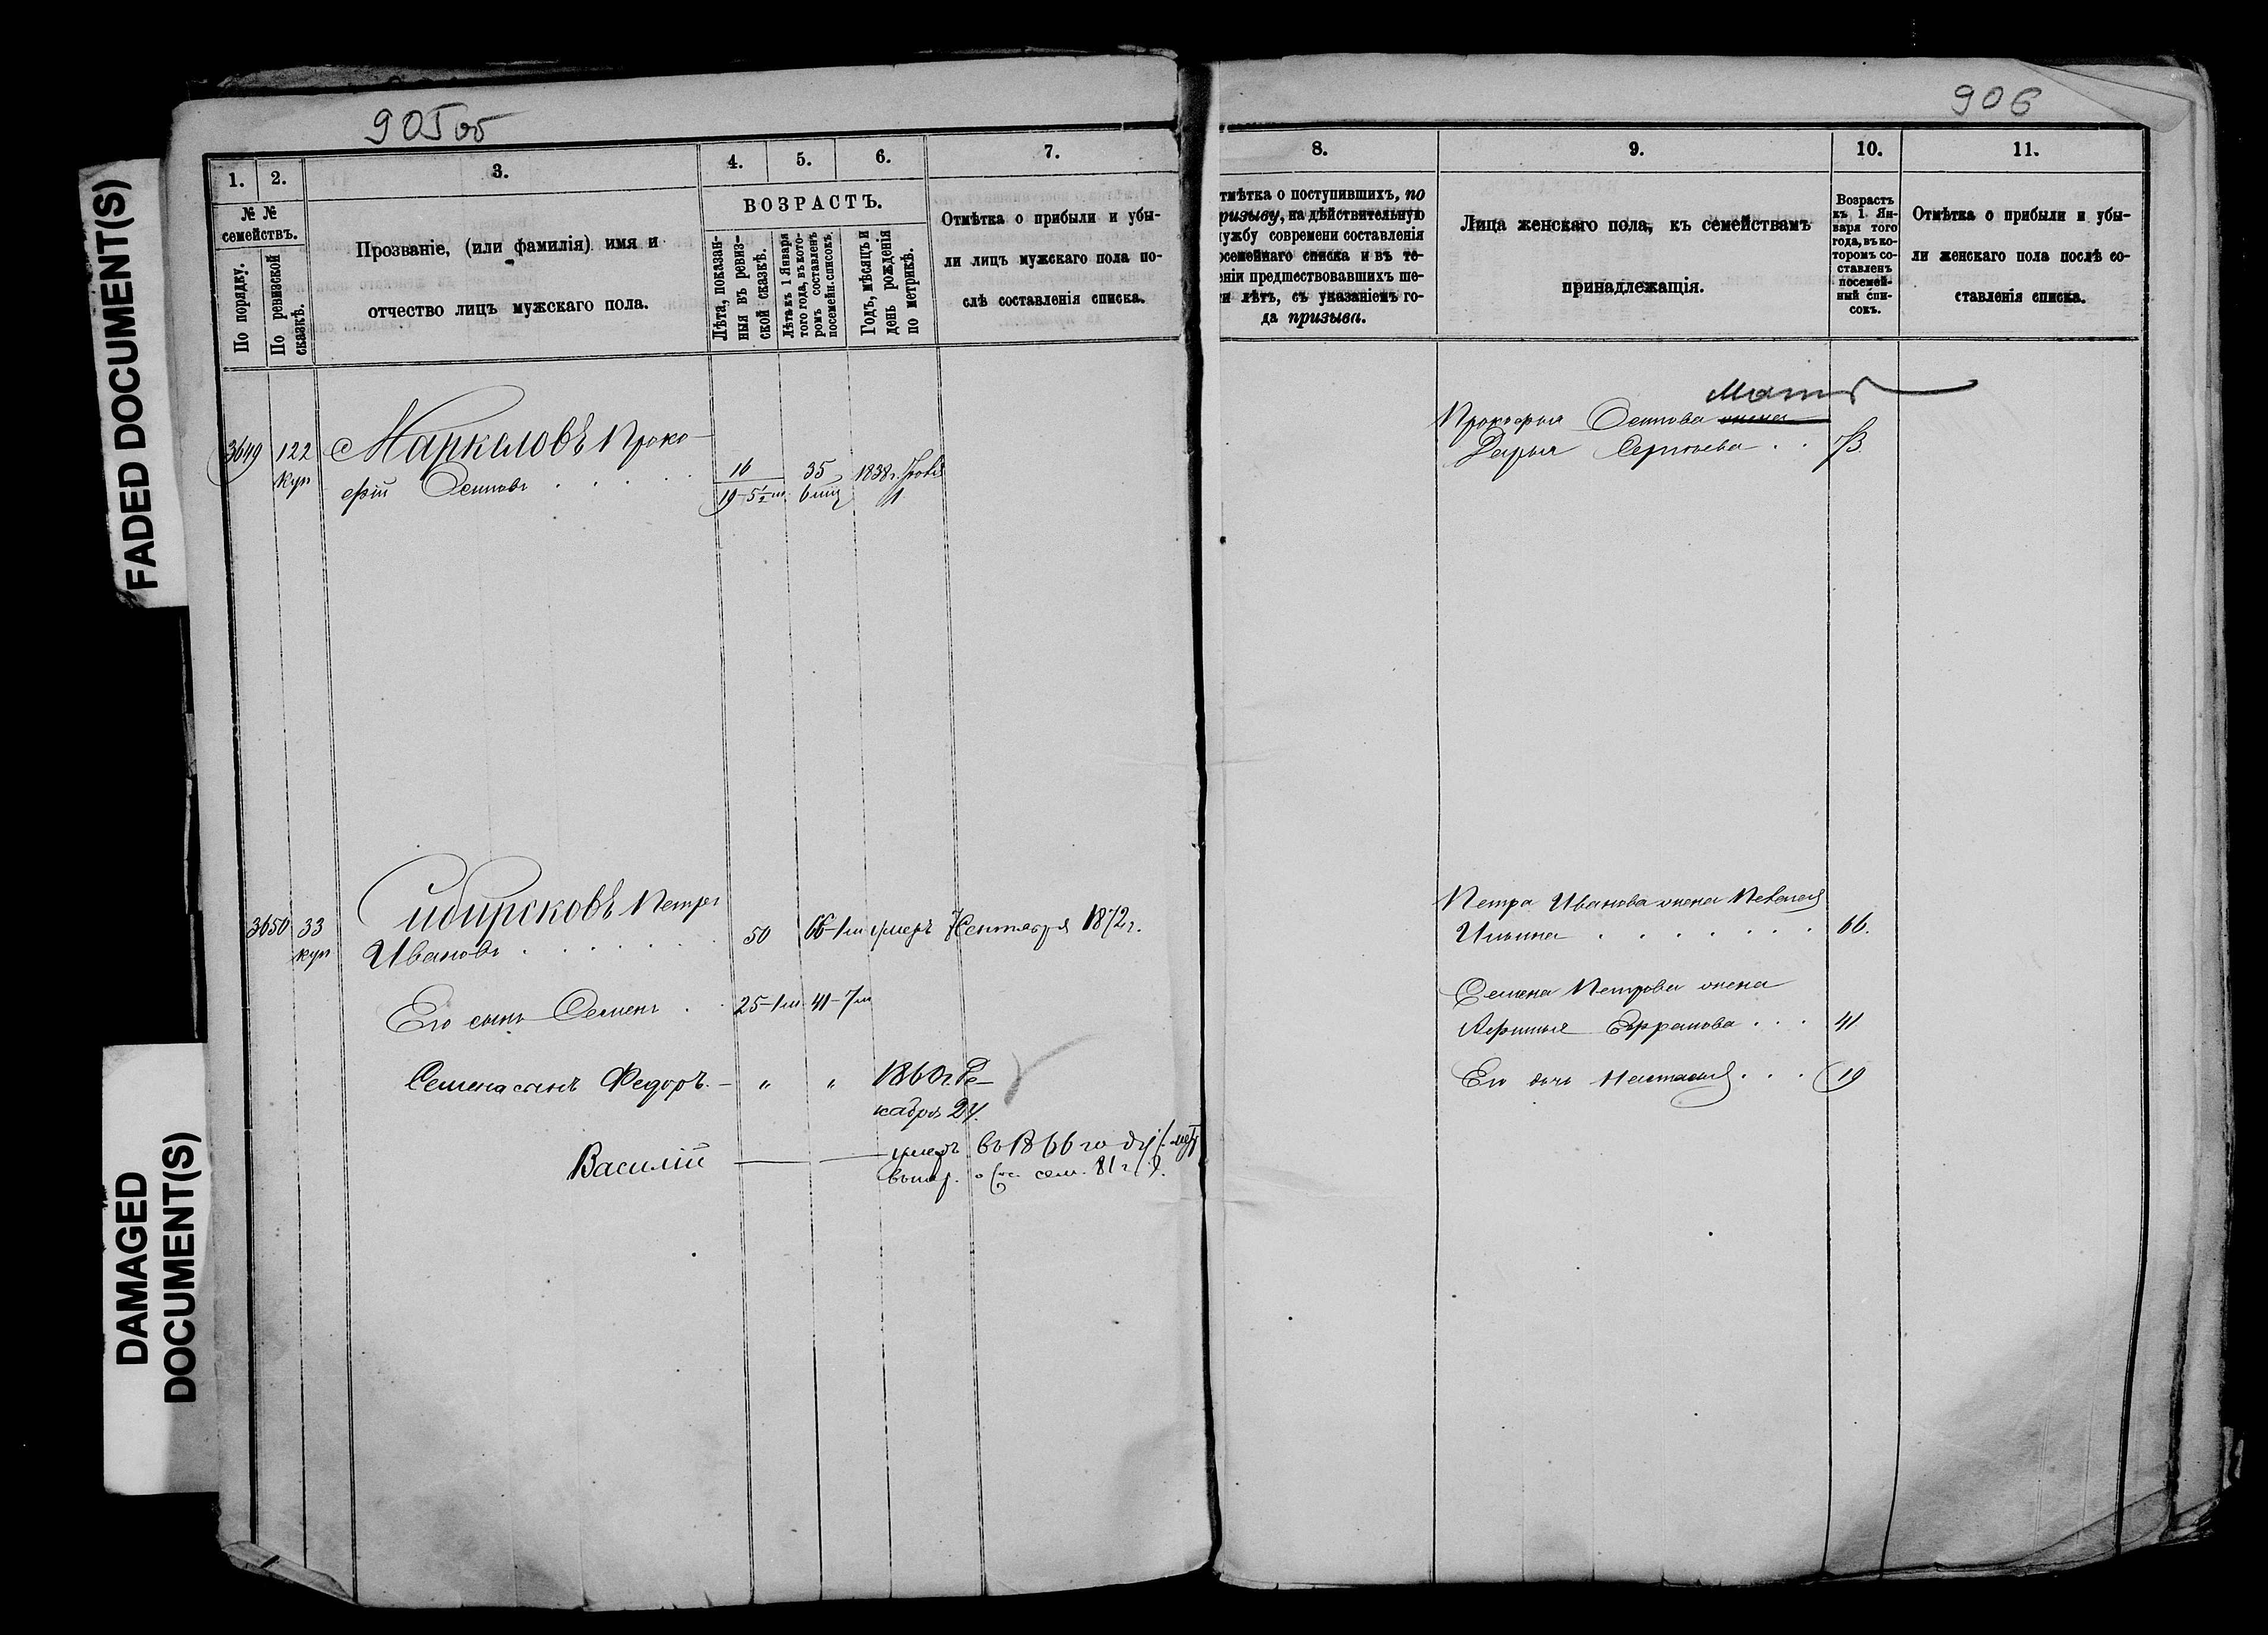 FADED DOCUMENT(S)
DAMAGED
DOCUMENT(S)
905об
1.
2.
3.
4.
5.
6.
7.
№ №
семействъ.
По порядку.
По ревизской
сказкѣ.
Прозваніе, (или фамилія) имя и
отчество лицъ мужскаго пола.
ВОЗРАСТЪ.
Лѣта, показан-
ныя въ ревиз-
ской сказкѣ.
Лѣта къ 1 Января
того года, въ кото-
ромъ составленъ
посемейн. списокъ
Годъ, мѣсяцъ и
день рожденія
по метрикѣ.
Отмѣтка о прибыли и убы-
ли лицъ мужскаго пола по-
слѣ составленія списка.
3649 122 Маркеловъ Проко-
куп
фій Осиповъ
16 35 1838 г.
19-5½ м. 6 мц
3650 33 Сибирсковъ Петръ
куп
Ивановъ 50 66-1м умеръ Сентября 1872 г.
Его сынъ Семенъ 25-1м 41-7м
Семена сынъ Федоръ - „ „ 1860 г. Де-
кабря 24.
Василій умеръ въ 1866 году
сем. 81 г.
906
8.
9.
10.
11.
тмѣтка о поступившихъ, по
ризыву, на дѣйствительную
ужбу современи составленія
осемейнаго списка и въ те-
еніи предшествовавшихъ ше-
и лѣтъ, съ указаніемъ го-
да призыва.
Лица женскаго пола, къ семействамъ
принадлежащія.
Возрастъ
къ 1 Ян-
варя того
года, въ ко-
торомъ со-
ставленъ
посемей-
ный спи-
сокъ.
Отмѣтка о прибыли и убы-
ли женскаго пола послѣ со-
ставленія списка.
Мать
Прокофья Осипова жена
Дарья Сергѣева 73.
Петра Иванова жена Пелагея
Ильина 66.
Семена Петрова жена
Афимья 41
Его дочь Настасья 19